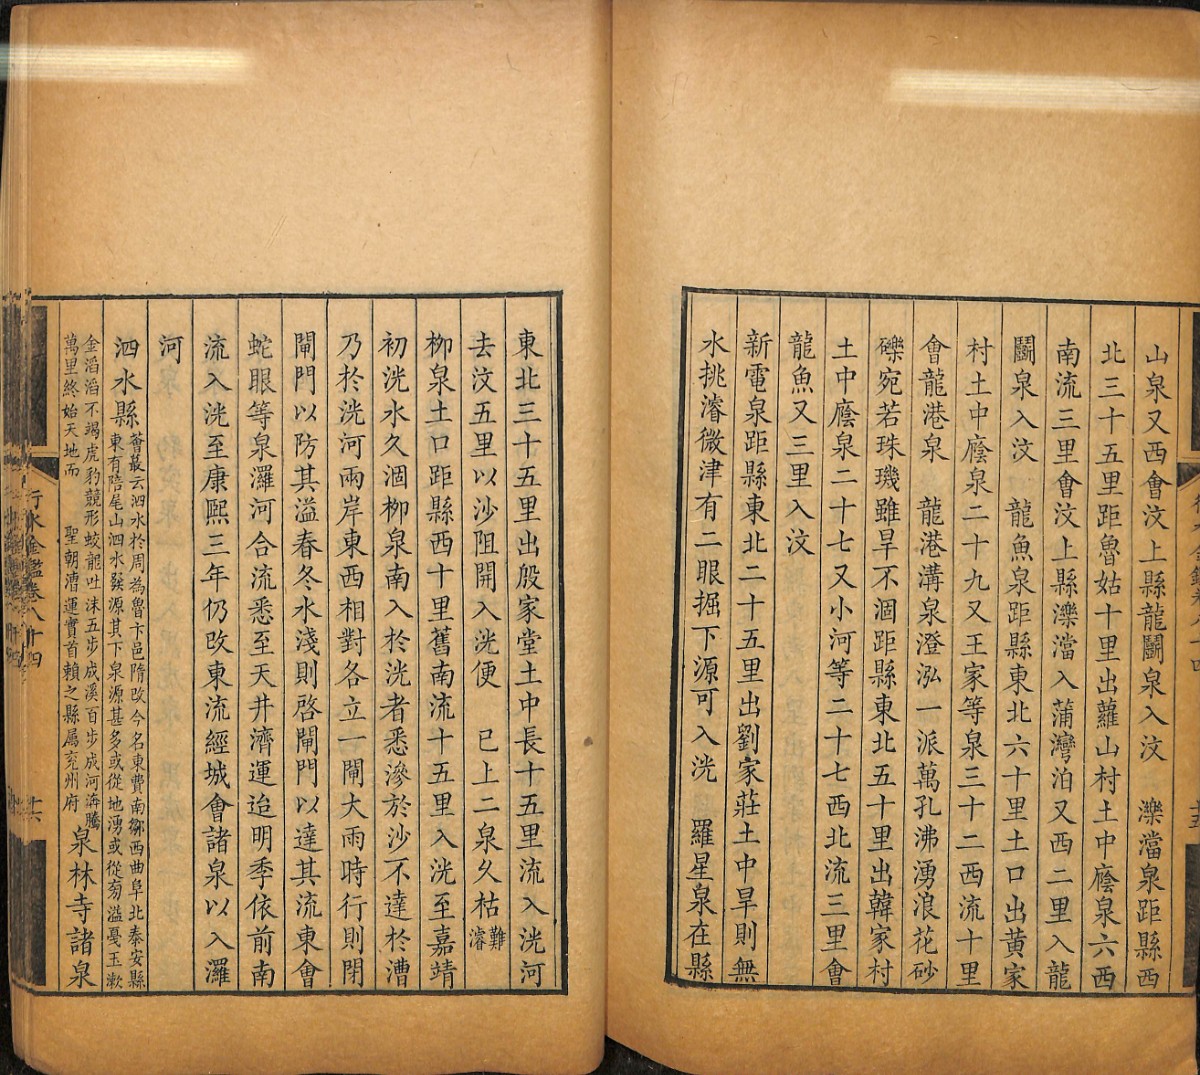 山泉又西會汶上縣龍鬭泉入汶　濼澢泉距縣西
北三十五里距魯姑十里出蘿山村土中廕泉六西
南流三里會汶上縣濼澢入蒲灣泊又西二里入龍
鬭泉入汶　龍魚泉距縣東北六十里土口出黃家
村土中廕泉二十九又王家等泉三十二西流十里
會龍港泉　龍港溝泉澄泓一派萬孔沸湧浪花砂
礫宛若珠璣雖旱不涸距縣東北五十里出韓家村
土中廕泉二十七又小河等二十七西北流三里會
龍魚又三里入汶
新電泉距縣東北二十五里出劉家莊土中旱則無
水挑濬微津有二眼掘下源可入洸　羅星泉在縣
東北三十五里出殷家堂土中長十五里流入洸河
去汶五里以沙阻開入洸便　已上二泉久枯難濬
柳泉土口距縣西十里舊南流十五里入洸至嘉靖
初洸水久涸柳泉南入於洸者悉滲於沙不達於漕
乃於洸河兩岸東西相對各立一閘大雨時行則閉
閘門以防其溢春冬水淺則啓閘門以達其流東會
蛇眼等泉濼河合流悉至天井濟運迨明季依前南
流入洸至康熙三年仍改東流經城會諸泉以入濼
河
泗水縣薈蕞云泗水於周為魯卞邑隋改今名東費南鄒西曲阜北泰安縣
東有陪尾山泗水發源其下泉源甚多或從地湧或從窌溢戞玉漱
金滔滔不竭虎豹競形蛟龍吐沫五步成溪百步成河濟騰
萬里終始天地而　聖朝漕運實首賴之縣属兖州府泉林寺諸泉
行水金鑑卷八十四